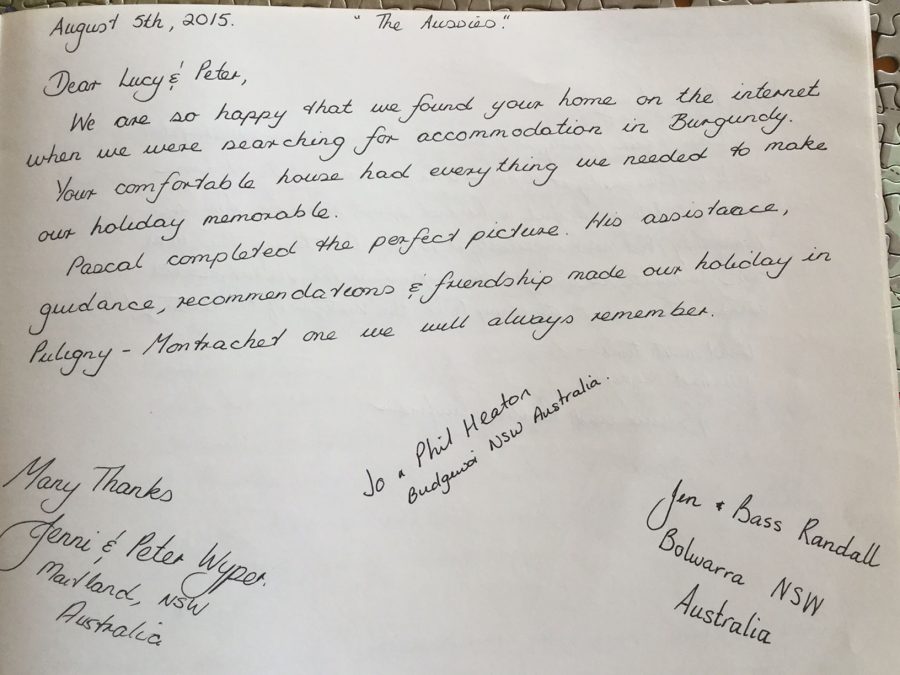 August 5th, 2015. "The Aussies."
Dear Lucy & Peter,
We are so happy that we found your home on the internet
when we were searching for accommodation in Burgundy.
Your comfortable house had everything we needed to make
our holiday memorable.
Pascal completed the perfect picture. His assistance,
guidance, recommendations & friendship made our holiday in
Puligny - Montrachet one we will always remember.
Jo & Phil Heaton
Budgewoi NSW Australia.
Many Thanks
Jenni & Peter Wyper.
Maitland, NSW
Australia
Jen & Bass Randall
Bolwarra NSW
Australia